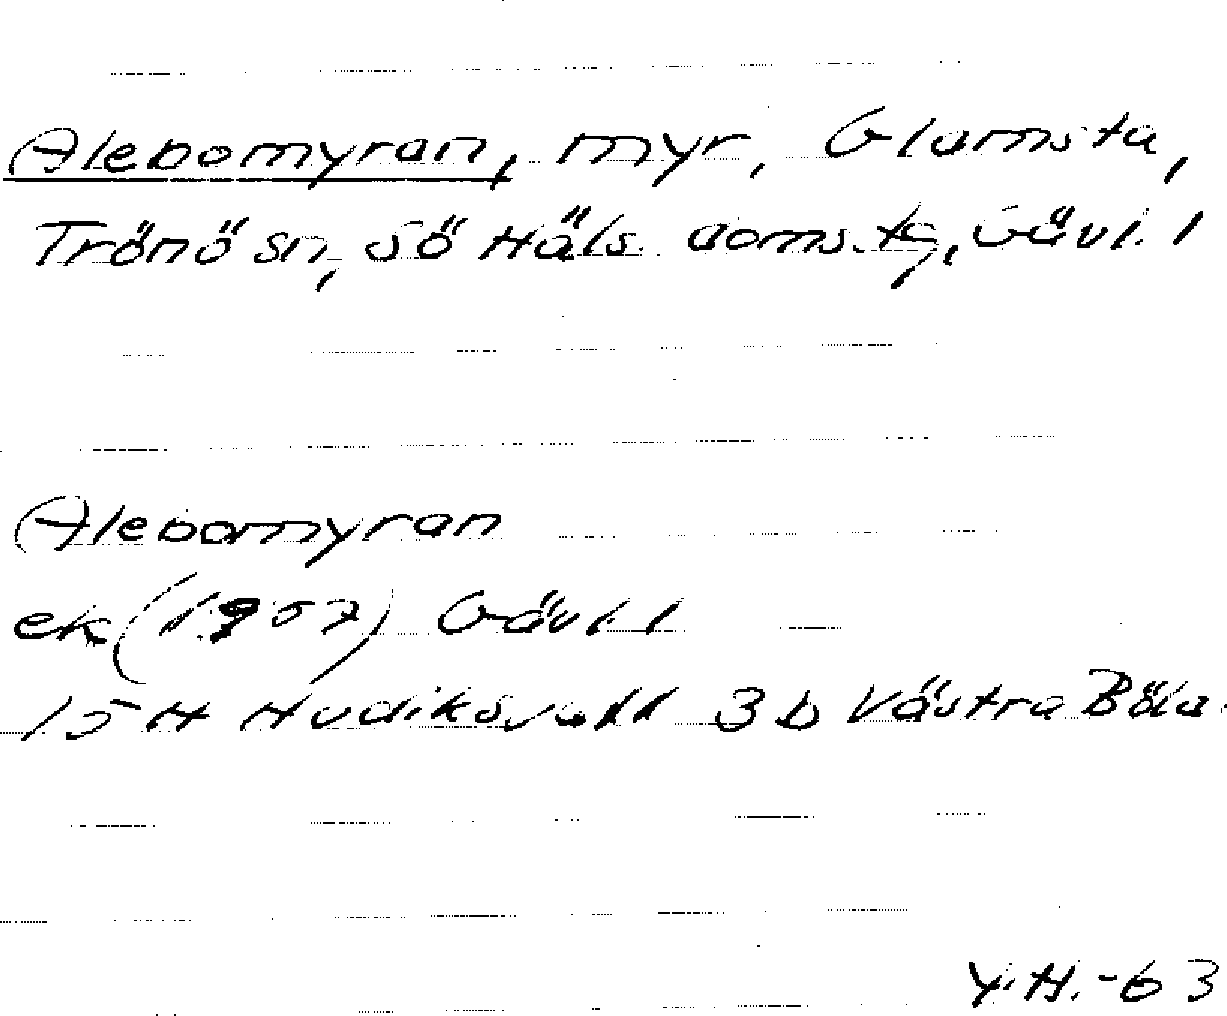 Alebomyran, myr, Glamsta,
Trönö sn, Sö Häls. domstg, Gävl. l
Alebomyran
ek (1957) Gävl. l
15 H Hudiksvall 3 b Västra Böla.
Y.H.-63